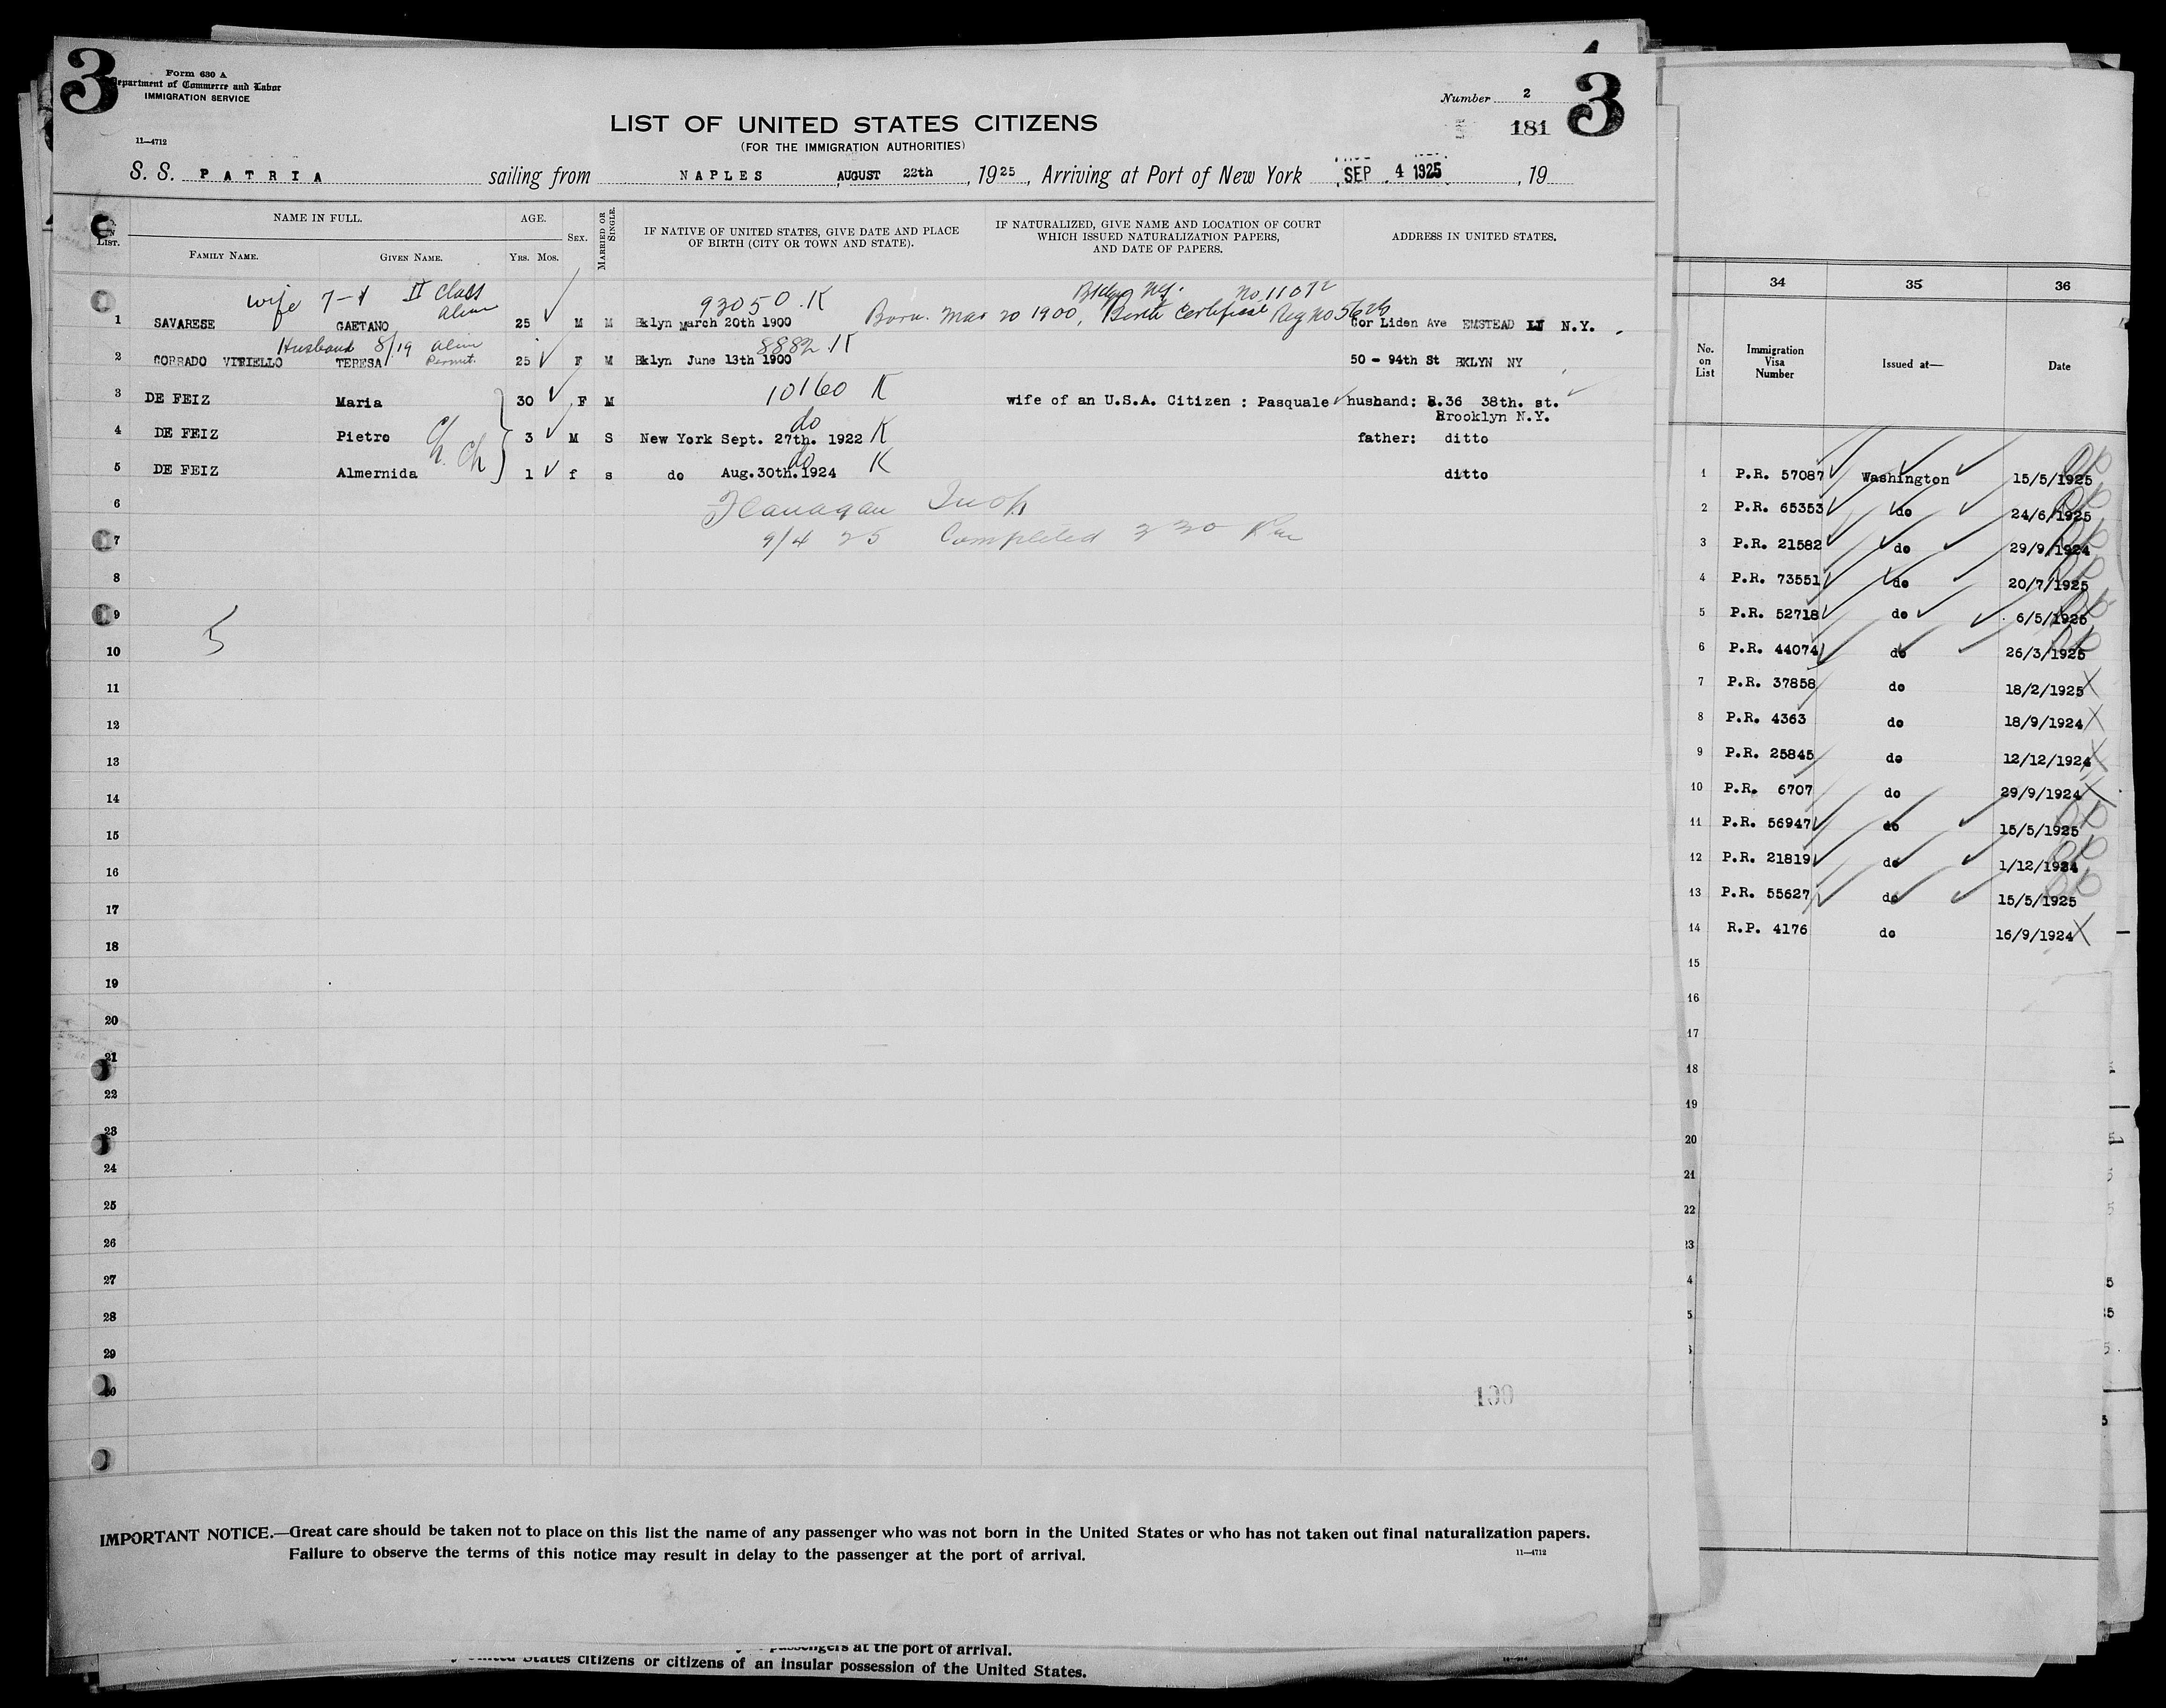 3
Form 630 A
Department of Commerce and Labor
IMMIGRATION SERVICE
11—4712
Number 2
181
3
LIST OF UNITED STATES CITIZENS
(FOR THE IMMIGRATION AUTHORITIES)
S. S. PATRIA sailing from NAPLES, AUGUST 22th, 1925, Arriving at Port of New York SEP 4 1925, 19
LIST.
NAME IN FULL.
FAMILY NAME.
GIVEN NAME.
AGE.
YRS. MOS.
SEX.
MARRIED OR SINGLE.
IF NATIVE OF UNITED STATES, GIVE DATE AND PLACE
OF BIRTH (CITY OR TOWN AND STATE).
IF NATURALIZED, GIVE NAME AND LOCATION OF COURT
WHICH ISSUED NATURALIZATION PAPERS,
AND DATE OF PAPERS.
ADDRESS IN UNITED STATES.
wife 7-1 II Class
Alien
93050.K
No 11072
Born. Mar 20 1900, Birth Certificate Reg No 5626
1 SAVARESE GAETANO 25 M M Bklyn March 20th 1900 Cor Liden Ave EMSTEAD LI N.Y.
Husband 8/19 Alien
Permit.
8882 K
2 CORRADO VITIELLO TERESA 25 F M Bklyn June 13th 1900 50 - 94th St BKLYN NY
10160 K
3 DE FEIZ Maria 30 F M wife of an U.S.A. Citizen : Pasquale husband: R.36 38th. st.
Brooklyn N.Y.
do
4 DE FEIZ Pietro Ch 3 M S New York Sept. 27th. 1922 K father: ditto
do
5 DE FEIZ Almernida Ch 1 f s do Aug.30th.1924 K ditto
6
Flanagan Insp
7
9/4 25 Completed 330 Pm
8
9
5
10
11
12
13
14
15
16
17
18
19
20
21
22
23
24
25
26
27
28
29
30
100
IMPORTANT NOTICE.—Great care should be taken not to place on this list the name of any passenger who was not born in the United States or who has not taken out final naturalization papers.
Failure to observe the terms of this notice may result in delay to the passenger at the port of arrival.
11—4712
passengers at the port of arrival.
United States citizens or citizens of an insular possession of the United States.
34 35 36
No.
on
List
Immigration
Visa
Number
Issued at—
Date
1 P.R. 57087 Washington 15/5/1925
2 P.R. 65353 do 24/6/1925
3 P.R. 21582 do 29/9/1924
4 P.R. 73551 do 20/7/1925
5 P.R. 52718 do 6/5/1925
6 P.R. 44074 do 26/3/1925
7 P.R. 37858 do 18/2/1925
8 P.R. 4363 do 18/9/1924
9 P.R. 25845 do 12/12/1924
10 P.R. 6707 do 29/9/1924
11 P.R. 56947 do 15/5/1925
12 P.R. 21819 do 1/12/1924
13 P.R. 55627 do 15/5/1925
14 R.P. 4176 do 16/9/1924
15
16
17
18
19
20
21
22
23
4
5